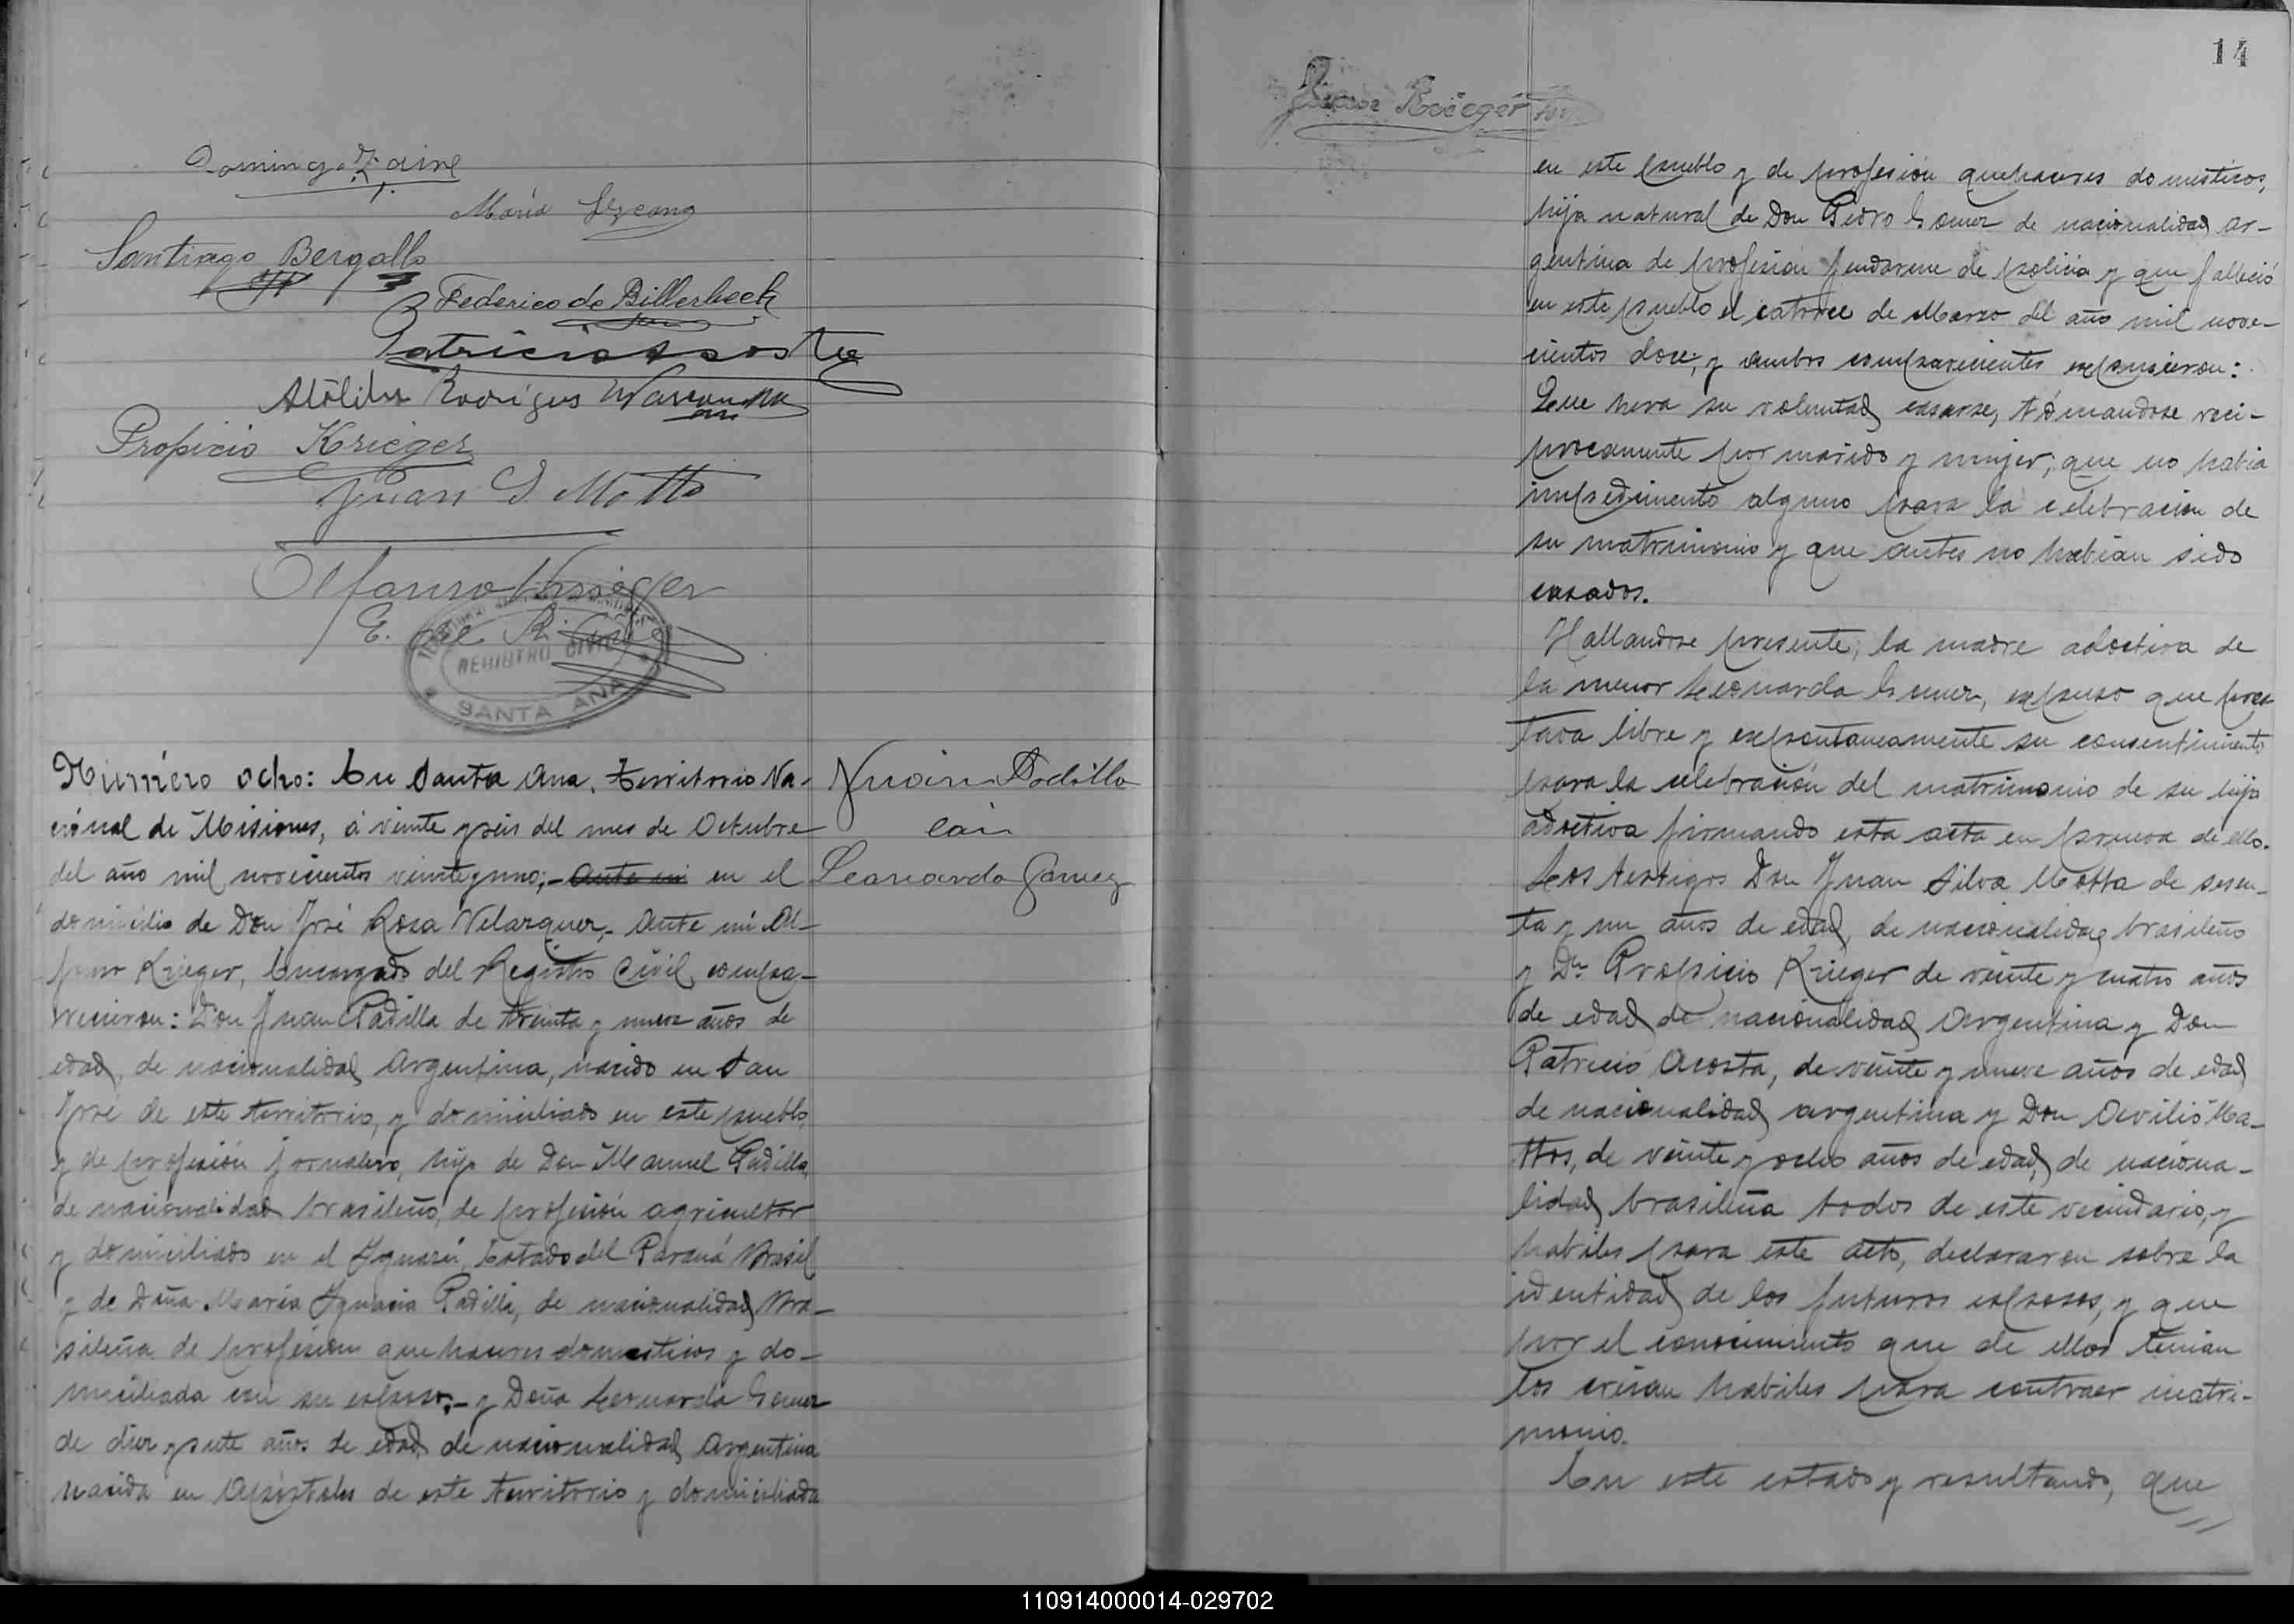 Domingo Zaine
María Lezcano
Santiago Bergallo
Federico de Billerbeck
Patricio Acosta
Rodrigues
Propicio Krieger
Juan S Motta
Alfauro Krieger
E. del R. Civil
REGISTRO CIVIL
SANTA ANA
Número ocho: En Santa Ana, Territorio Na-
cional de Misiones, á veinte y seis del mes de Octubre
del año mil novecientos veinte y uno; - ante mi en el
domicilio de Don José Rosa Velazquez, - ante mi Al-
fauro Krieger, Encargado del Registro Civil, compa-
recieron: Don Juan Padilla de treinta y nueve años de
edad, de nacionalidad Argentina, nacido en San
José de este territorio, y domiciliado en este pueblo,
y de profesión jornalero, hijo de Don Manuel Padilla,
de nacionalidad brasileño, de profesión agricultor
y domiciliado en el Yguazú, Estado del Paraná Brasil
y de Doña María Ygnacia Padilla, de nacionalidad Bra-
sileña de profesion quehaceres domesticos y do-
miciliada con su esposo; - y Doña Leonarda Gomez
de diez y siete años de edad, de nacionalidad Argentina
nacida en Apóstoles de este territorio y domiciliada
Juan Padilla
Leonarda Gomez
14
Krieger
en este pueblo y de profesión quehaceres domésticos,
hija natural de Don Pedro Gomez de nacionalidad ar-
gentina de profesión gendarme de policia y que falleció
en este pueblo el catorce de Marzo del año mil nove-
cientos doce; y ambos comparecientes expusieron:
Que hera su voluntad casarse, tómandose reci-
procamente por marido y mujer, que no habia
impedimento alguno para la celebracion de
su matrimonio y que antes no habian sido
casados.
Hallandose presente; la madre adoctiva de
la menor Leonarda Gomez, expuso que pres
tava libre y expontaneamente su consentimiento
para la celebración del matrimonio de su hija
adoctiva firmando esta acta en prueva de ello.
Los testigos Don Juan Silva Motta de sesen-
ta y un años de edad, de nacionalidad brasileño
y Dn Propicio Krieger de veinte y cuatro años
de edad de nacionalidad Argentina y Don
Patricio Acosta, de veinte y nueve años de edad
de nacionalidad argentina y Don Ma-
ttos, de veinte y ocho años de edad, de naciona-
lidad brasileña todos de este vecindario, y
habiles para este acto, declararon sobre la
identidad de los futuros esposos, y que
por el conocimiento que de ellos tenian
los creian habiles para contraer matri-
monio.
En este estado y resultando, que
110914000014-029702